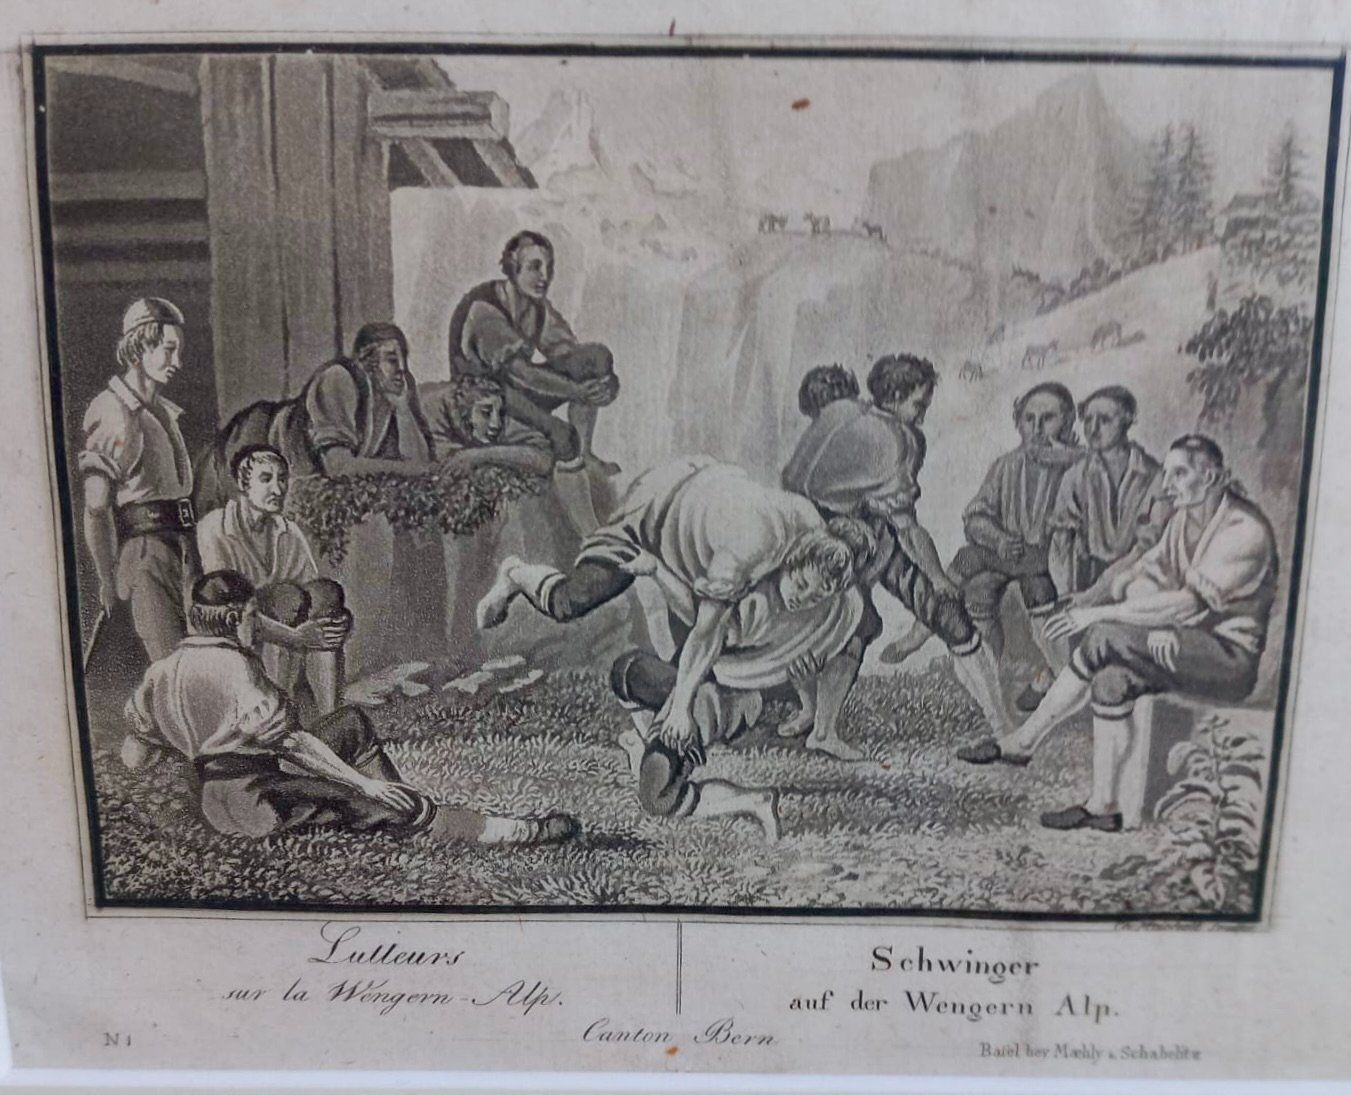 Lutteurs
sur la Wengern-Alp.
Schwinger
auf der Wengern Alp.
Canton Bern
N 1
Basel bey Mæhly & Schabelitz